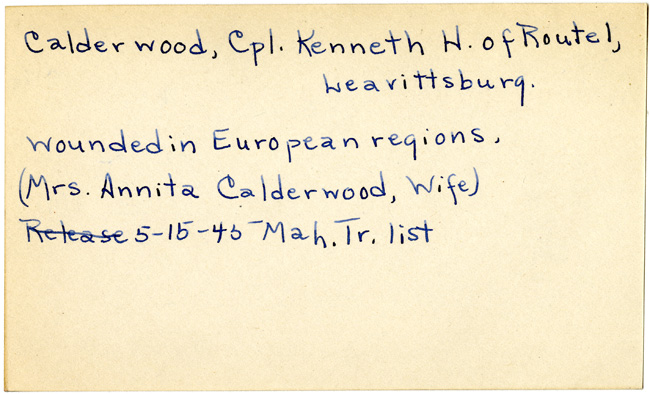 Calderwood, Cpl. Kenneth H. of Route 1,
Leavittsburg.
Wounded in European regions.
(Mrs. Annita Calderwood, Wife)
Release 5-15-45 - Mah. Tr. list